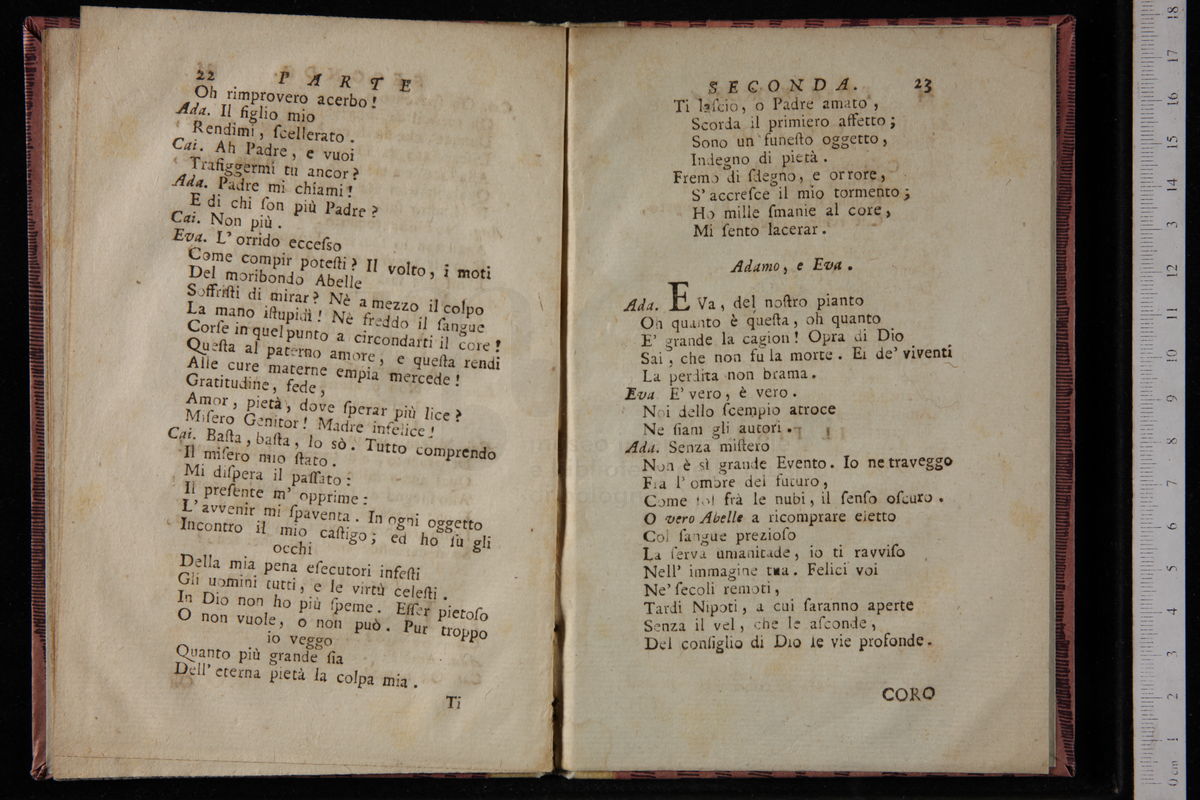 22 PARTE
Oh rimprovero acerbo!
Ada. Il figlio mio
Rendimi, ſcellerato.
Cai. Ah Padre, e vuoi
Trafiggermi tu ancor?
Ada. Padre mi chiami!
E di chi ſon più Padre?
Cai. Non più.
Eva. L' orrido ecceſso
Come compir poteſti? Il volto, i moti
Del moribondo Abelle
Soffriſti di mirar? Nè a mezzo il colpo
La mano iſtupidì! Nè freddo il ſangue
Corſe in quel punto a circondarti il core!
Queſta al paterno amore, e queſta rendi
Alle cure materne empia mercede!
Gratitudine, fede,
Amor, pietà, dove ſperar più lice?
Miſero Genitor! Madre infelice!
Cai. Baſta, baſta, lo sò. Tutto comprendo
Il miſero mio ſtato.
Mi diſpera il paſſato:
Il preſente m' opprime:
L' avvenir mi ſpaventa. In ogni oggetto
Incontro il mio caſtigo; ed ho ſù gli
occhi
Della mia pena eſecutori infeſti
Gli uomini tutti, e le virtù celeſti.
In Dio non ho più ſpeme. Eſſer pietoſo
O non vuole, o non può. Pur troppo
io veggo
Quanto più grande ſia
Dell' eterna pietà la colpa mia.
Ti
SECONDA. 23
Ti laſcio, o Padre amato,
Scorda il primiero affetto;
Sono un funeſto oggetto,
Indegno di pietà.
Fremo di ſdegno, e orrore,
S' accreſce il mio tormento;
Ho mille ſmanie al core,
Mi ſento lacerar.
Adamo, e Eva.
Ada. EVa, del noſtro pianto
Oh quanto è queſta, oh quanto
E' grande la cagion! Opra di Dio
Sai, che non fu la morte. Ei de' viventi
La perdita non brama.
Eva E' vero, è vero.
Noi dello ſcempio atroce
Ne ſiam gli autori.
Ada. Senza miſtero
Non è sì grande Evento. Io ne traveggo
Fra l' ombre del futuro,
Come ſol frà le nubi, il ſenſo oſcuro.
O vero Abelle a ricomprare eletto
Col ſangue prezioſo
La ſerva umanitade, io ti ravviſo
Nell' immagine tua. Felici voi
Ne' ſecoli remoti,
Tardi Nipoti, a cui ſaranno aperte
Senza il vel, che le aſconde,
Del conſiglio di Dio le vie profonde.
CORO
0 cm 1 2 3 4 5 6 7 8 9 10 11 12 13 14 15 16 17 18